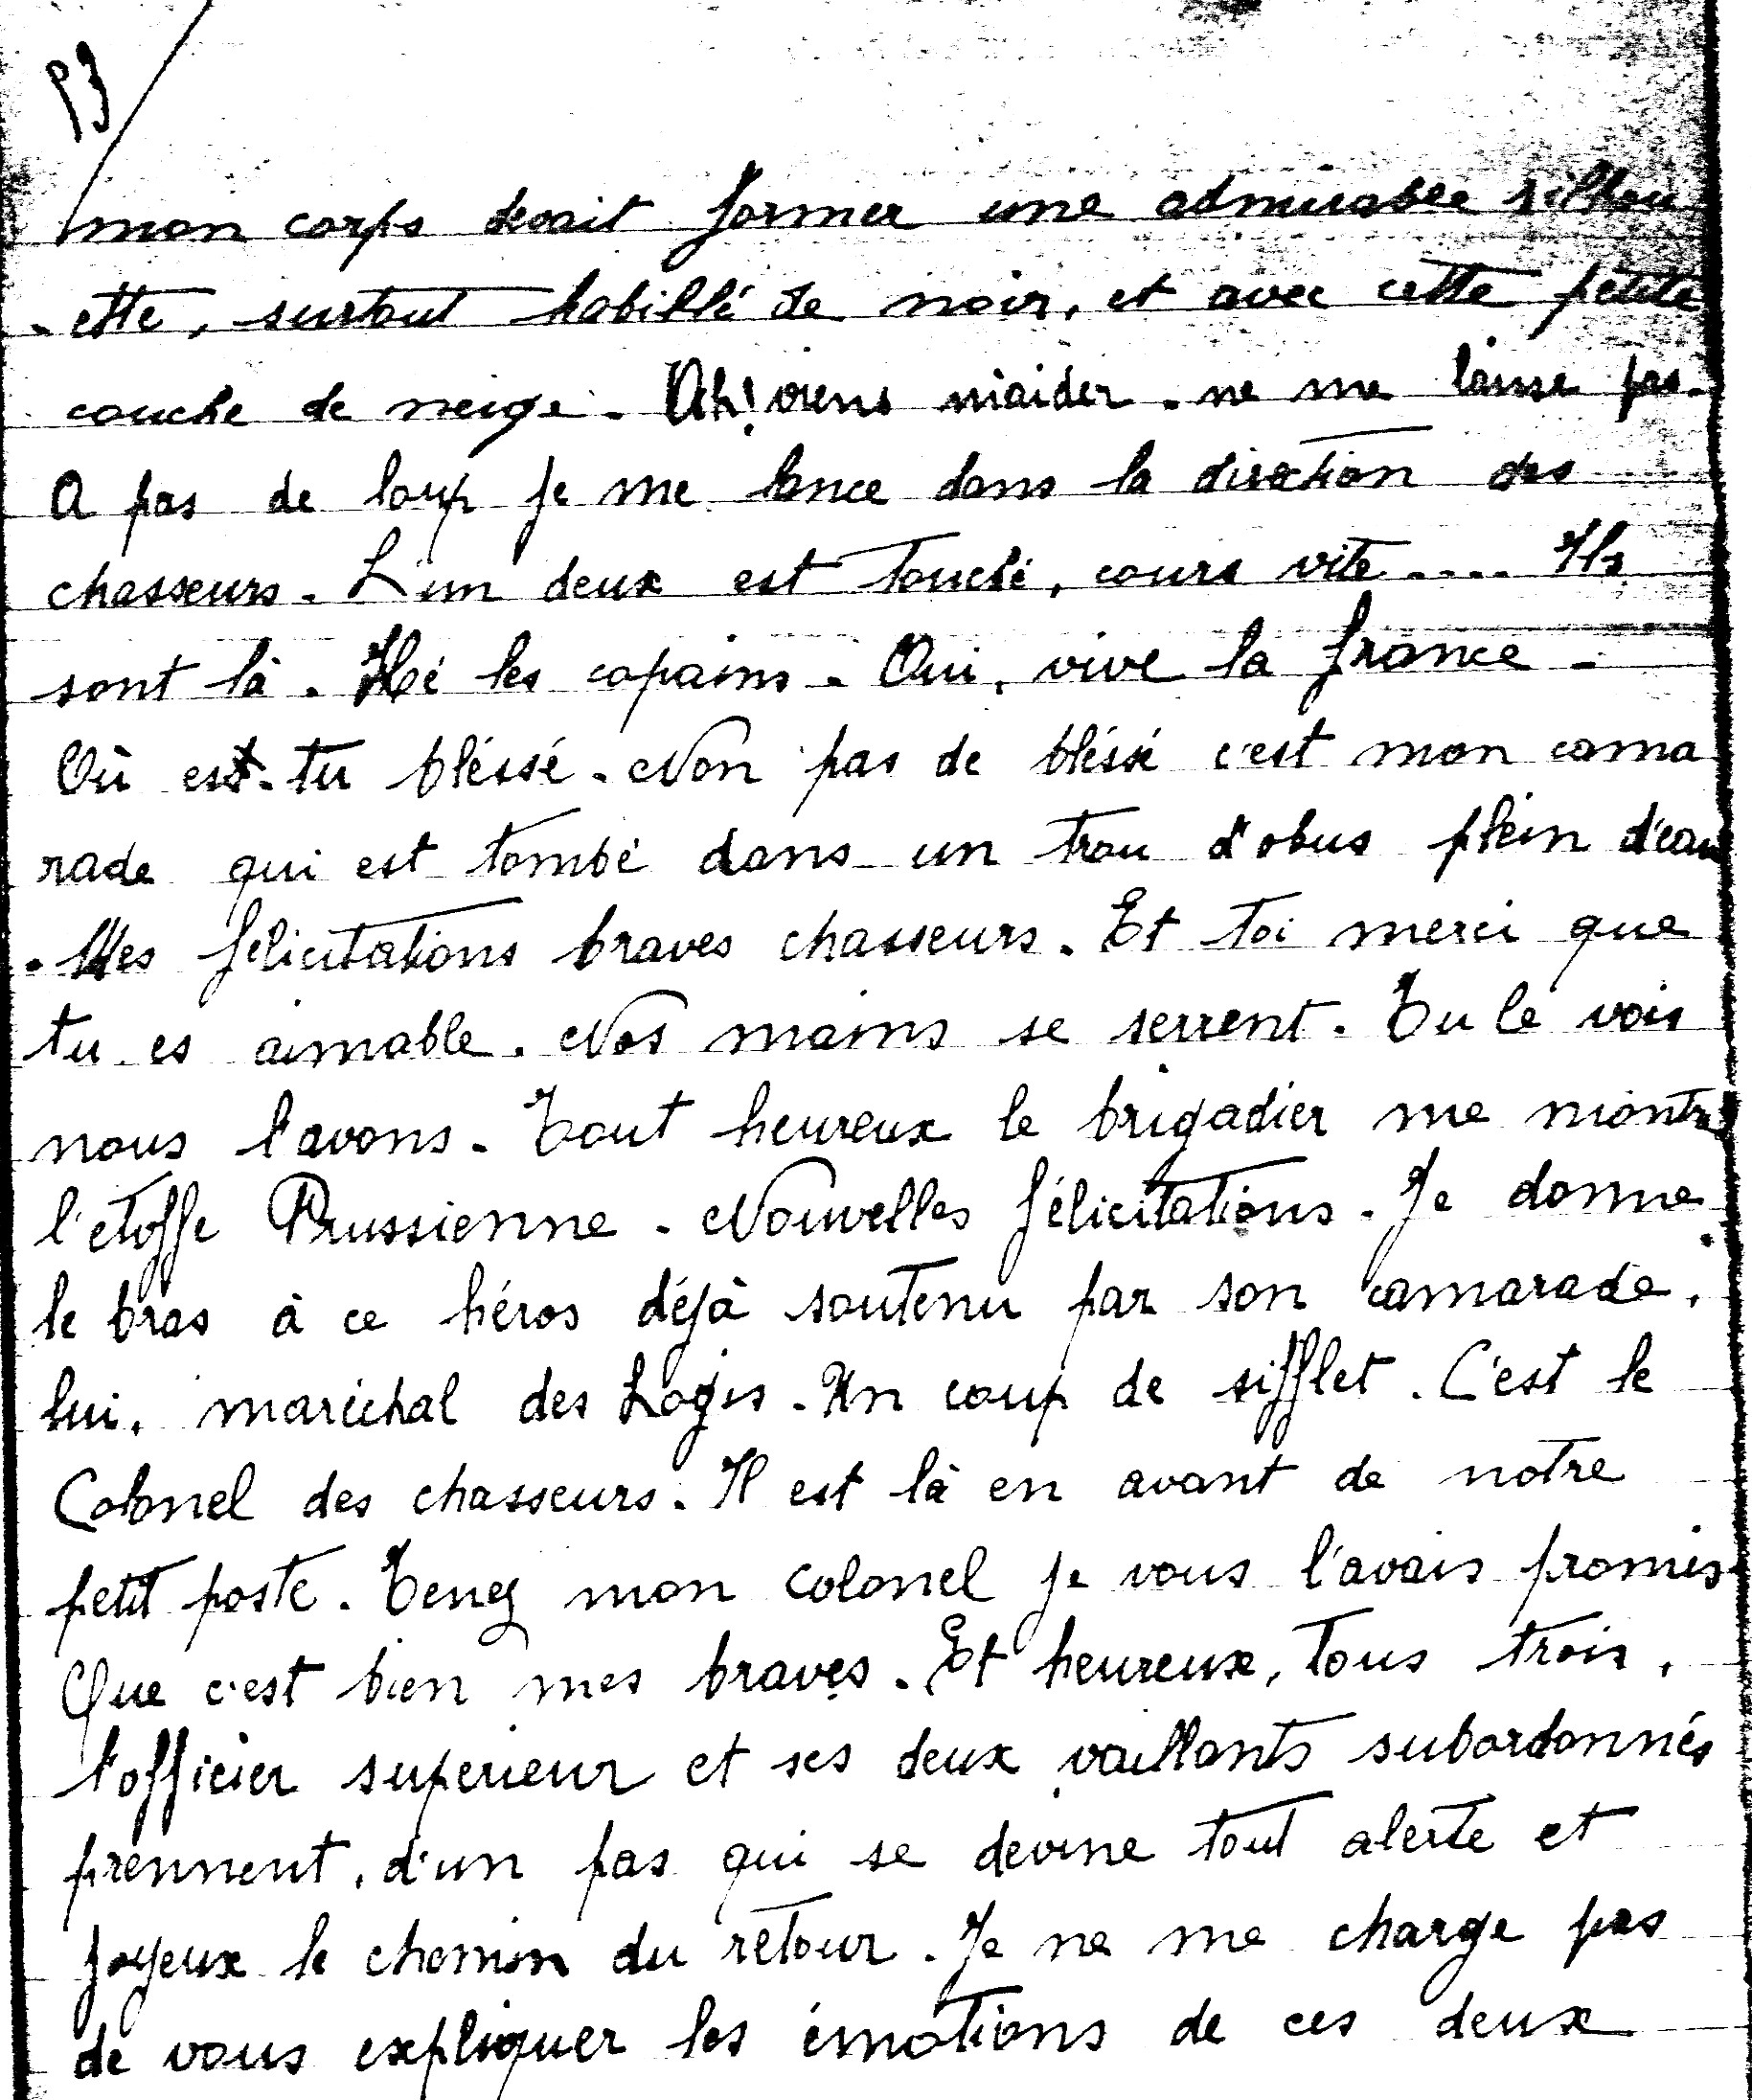 P3
mon corps devait former une admirable silhou
-ette, surtout habillé de noir, et avec cette petite
couche de neige. Ah! viens m'aider. ne me laisse pas.
A pas de loup je me lance dans la direction des
chasseurs. L'un deux est touché, cours vite .... Ils
sont là. Hé les copains. Oui, vive la france -
Où est-tu bléssé. Non pas de bléssé c'est mon cama
rade qui est tombé dans un trou d'obus plein d'eau
. Mes félicitations braves chasseurs. Et toi merci que
tu es aimable. Nos mains se serrent. Tu le vois
nous l'avons. Tout heureux le brigadier me montre
l'étoffe Prussienne. Nouvelles félicitations. Je donne
le bras à ce héros déjà soutenu par son camarade,
lui, maréchal des Logis. Un coup de sifflet. C'est le
Colonel des chasseurs. Il est là en avant de notre
petit poste. Tenez mon colonel je vous l'avais promis.
Que c'est bien mes braves. Et heureux, Tous trois,
l'officier superieur et ses deux vaillants subordonnés
prennent, d'un pas qui se devine tout alerte et
joyeux le chemin du retour. Je ne me charge pas
de vous expliquer les émotions de ces deux